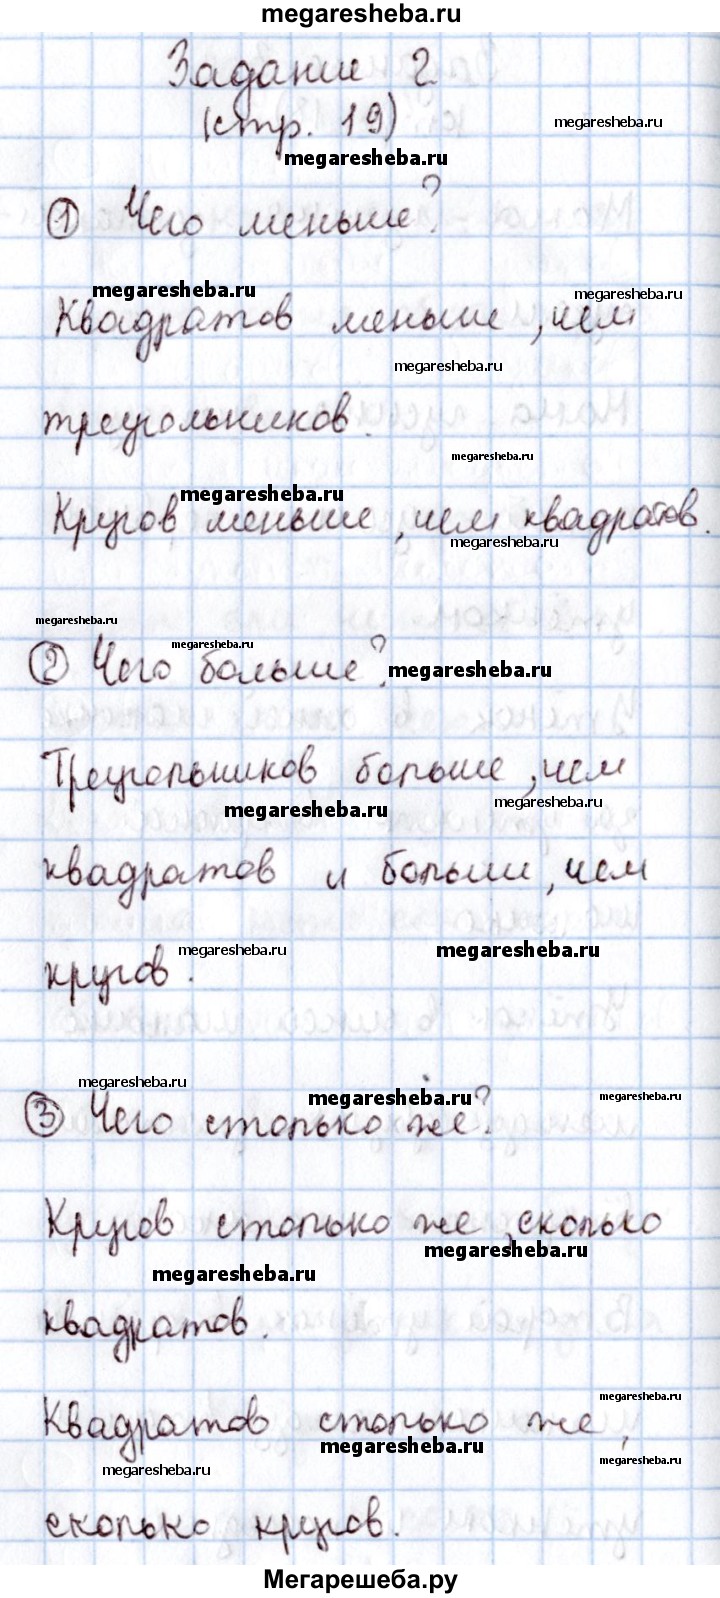 megaresheba.ru
Задание 2
(стр. 19)
megaresheba.ru
megaresheba.ru
① Чего меньше?
megaresheba.ru
megaresheba.ru
Квадратов меньше, чем
megaresheba.ru
треугольников.
megaresheba.ru
megaresheba.ru
Кругов меньше, чем квадратов.
megaresheba.ru
megaresheba.ru
megaresheba.ru
② Чего больше?
megaresheba.ru
Треугольников больше, чем
megaresheba.ru
megaresheba.ru
квадратов и больше, чем
megaresheba.ru
megaresheba.ru
кругов.
megaresheba.ru
megaresheba.ru
megaresheba.ru
③ Чего столько же?
Кругов столько же, сколько
megaresheba.ru
megaresheba.ru
квадратов.
megaresheba.ru
Квадратов столько же,
megaresheba.ru
megaresheba.ru
megaresheba.ru
сколько кругов.
Мегарешеба.ру